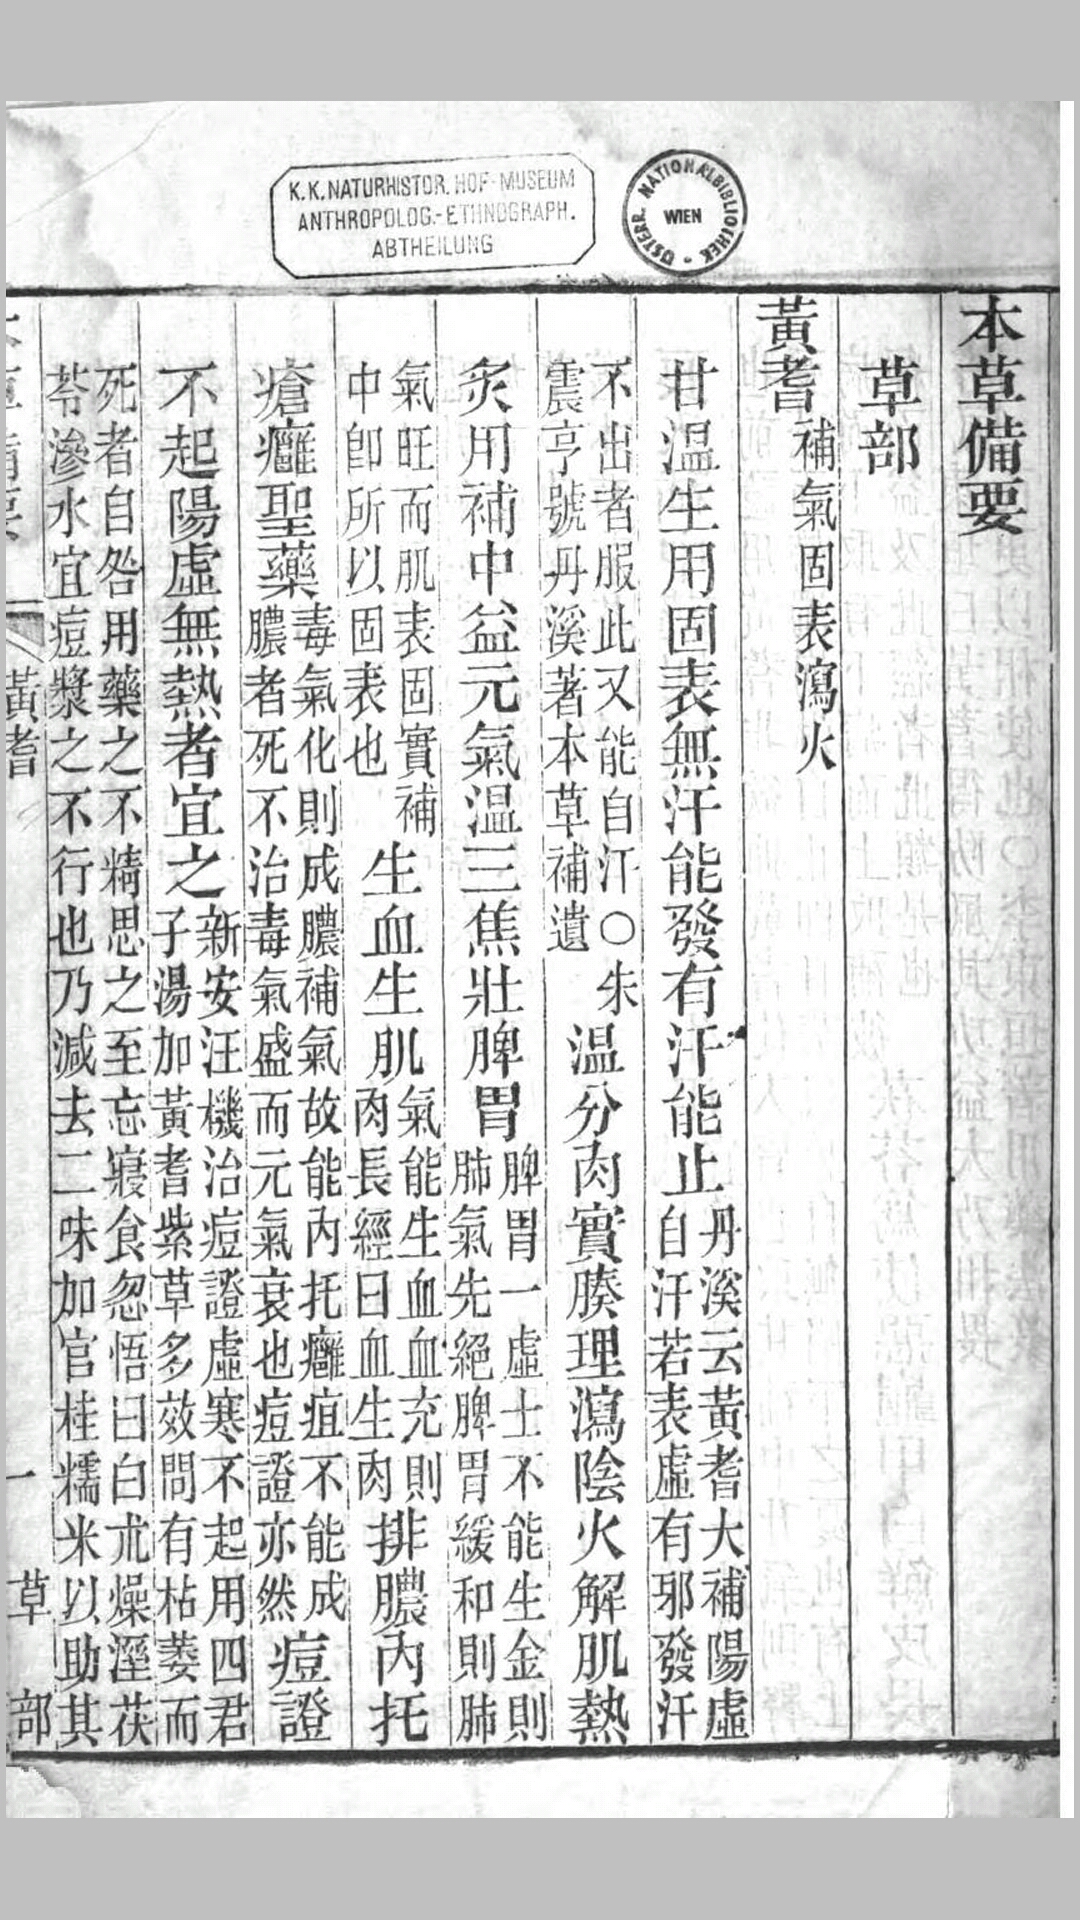 K.K.NATURHISTOR. HOF-MUSEUM
ANTHROPOLOG.-ETHNOGRAPH.
ABTHEILUNG
ÖSTERR. NATIONALBIBLIOTHEK
WIEN
本草備要
草部
黃耆補氣固表瀉火
甘溫生用固表無汗能發有汗能止丹溪云黃耆大補陽虛
自汗若表虛有邪發汗
不出者服此又能自汗〇朱
震亨號丹溪著本草補遺
溫分肉實腠理瀉陰火解肌熱
炙用補中益元氣溫三焦壯脾胃脾胃一虛土不能生金則
肺氣先絕脾胃緩和則肺
氣旺而肌表固實補
中卽所以固表也
生血生肌氣能生血血充則
肉長經曰血生肉
排膿內托
瘡癰聖藥毒氣化則成膿補氣故能內托癰疽不能成
膿者死不治毒氣盛而元氣衰也痘證亦然
痘證
不起陽虛無熱者宜之新安汪機治痘證虛寒不起用四君
子湯加黃耆紫草多效問有枯萎而
死者自咎用藥之不精思之至忘寢食忽悟曰白朮燥溼茯
苓滲水宜痘漿之不行也乃減去二味加官桂糯米以助其
黃耆
一
草部